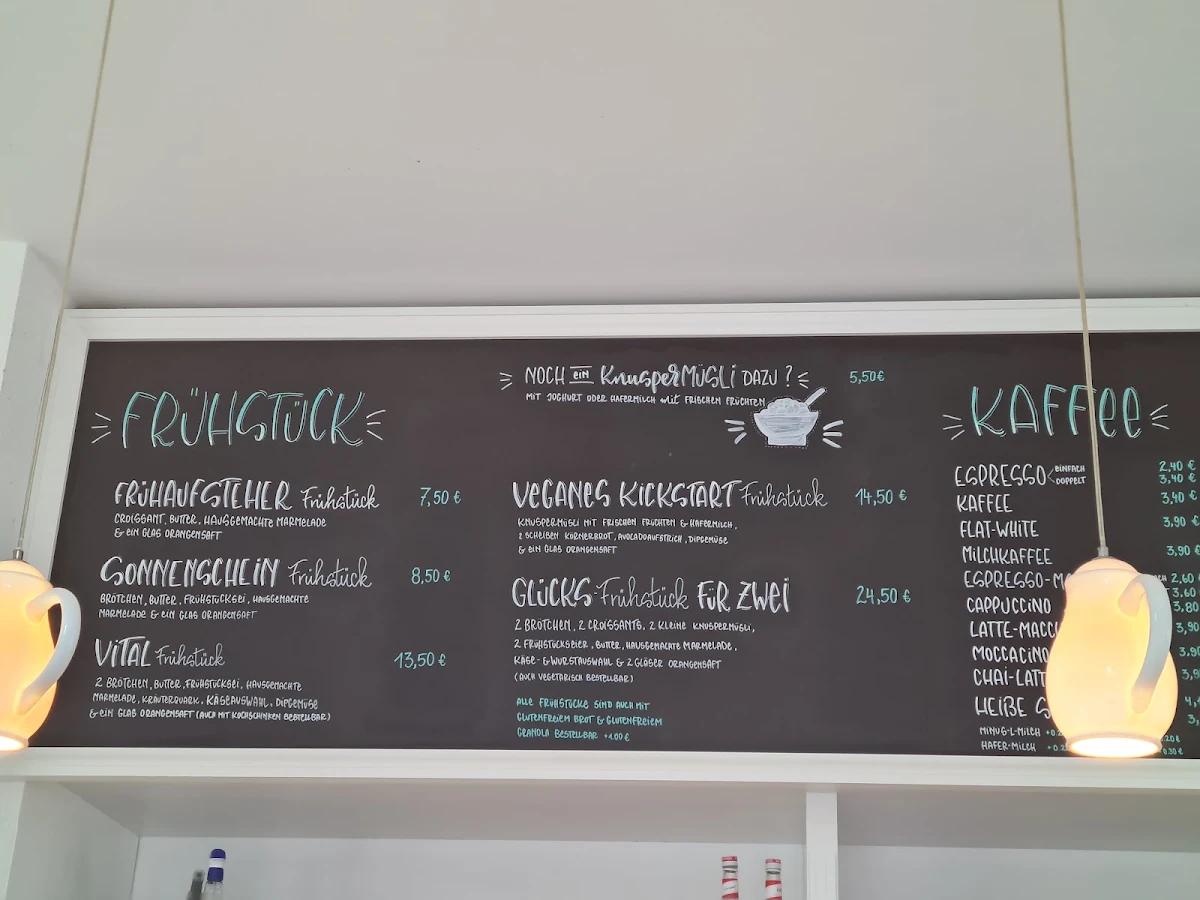 FRÜHSTÜCK
FRÜHAUFSTEHER Frühstück 7,50 €
CROISSANT, BUTTER, HAUSGEMACHTE MARMELADE
& EIN GLAS ORANGENSAFT
SONNENSCHEIN Frühstück 8,50 €
BRÖTCHEN, BUTTER, FRÜHSTÜCKSEI, HAUSGEMACHTE
MARMELADE & EIN GLAS ORANGENSAFT
VITAL Frühstück 13,50 €
2 BRÖTCHEN, BUTTER, FRÜHSTÜCKSEI, HAUSGEMACHTE
MARMELADE, KRÄUTERQUARK, KÄSEAUSWAHL, DIPGEMÜSE
& EIN GLAS ORANGENSAFT (AUCH MIT KOCHSCHINKEN BESTELLBAR)
NOCH EIN KnusperMÜSLI DAZU? 5,50€
MIT JOGHURT ODER HAFERMILCH mit FRISCHEN FRÜCHTEN
VEGANES KICKSTART Frühstück 14,50 €
KNUSPERMÜSLI MIT FRISCHEN FRÜCHTEN & HAFERMILCH,
2 SCHEIBEN KÖRNERBROT, AVOCADOAUFSTRICH, DIPGEMÜSE
& EIN GLAS ORANGENSAFT
GLÜCKS-Frühstück FÜR ZWEI 24,50 €
2 BRÖTCHEN, 2 CROISSANTS, 2 KLEINE KNUSPERMÜSLI,
2 FRÜHSTÜCKSEIER, BUTTER, HAUSGEMACHTE MARMELADE,
KÄSE- & WURSTAUSWAHL & 2 GLÄSER ORANGENSAFT
(AUCH VEGETARISCH BESTELLBAR)
ALLE FRÜHSTÜCKE SIND AUCH MIT
GLUTENFREIEM BROT & GLUTENFREIEM
GRANOLA BESTELLBAR +1.00 €
KAFFEE
ESPRESSO EINFACH 2,40 €
DOPPELT 3,40 €
KAFFEE 3,40 €
FLAT-WHITE 3,90 €
MILCHKAFFEE 3,90 €
ESPRESSO-M 2,60
3.60
CAPPUCCINO 3,80
LATTE-MACC 3,90
MOCCACINO 3,90
CHAI-LATT 3,9
HEIßE S
MINUS-L-MILCH +0.2
HAFER-MILCH +0.30 €